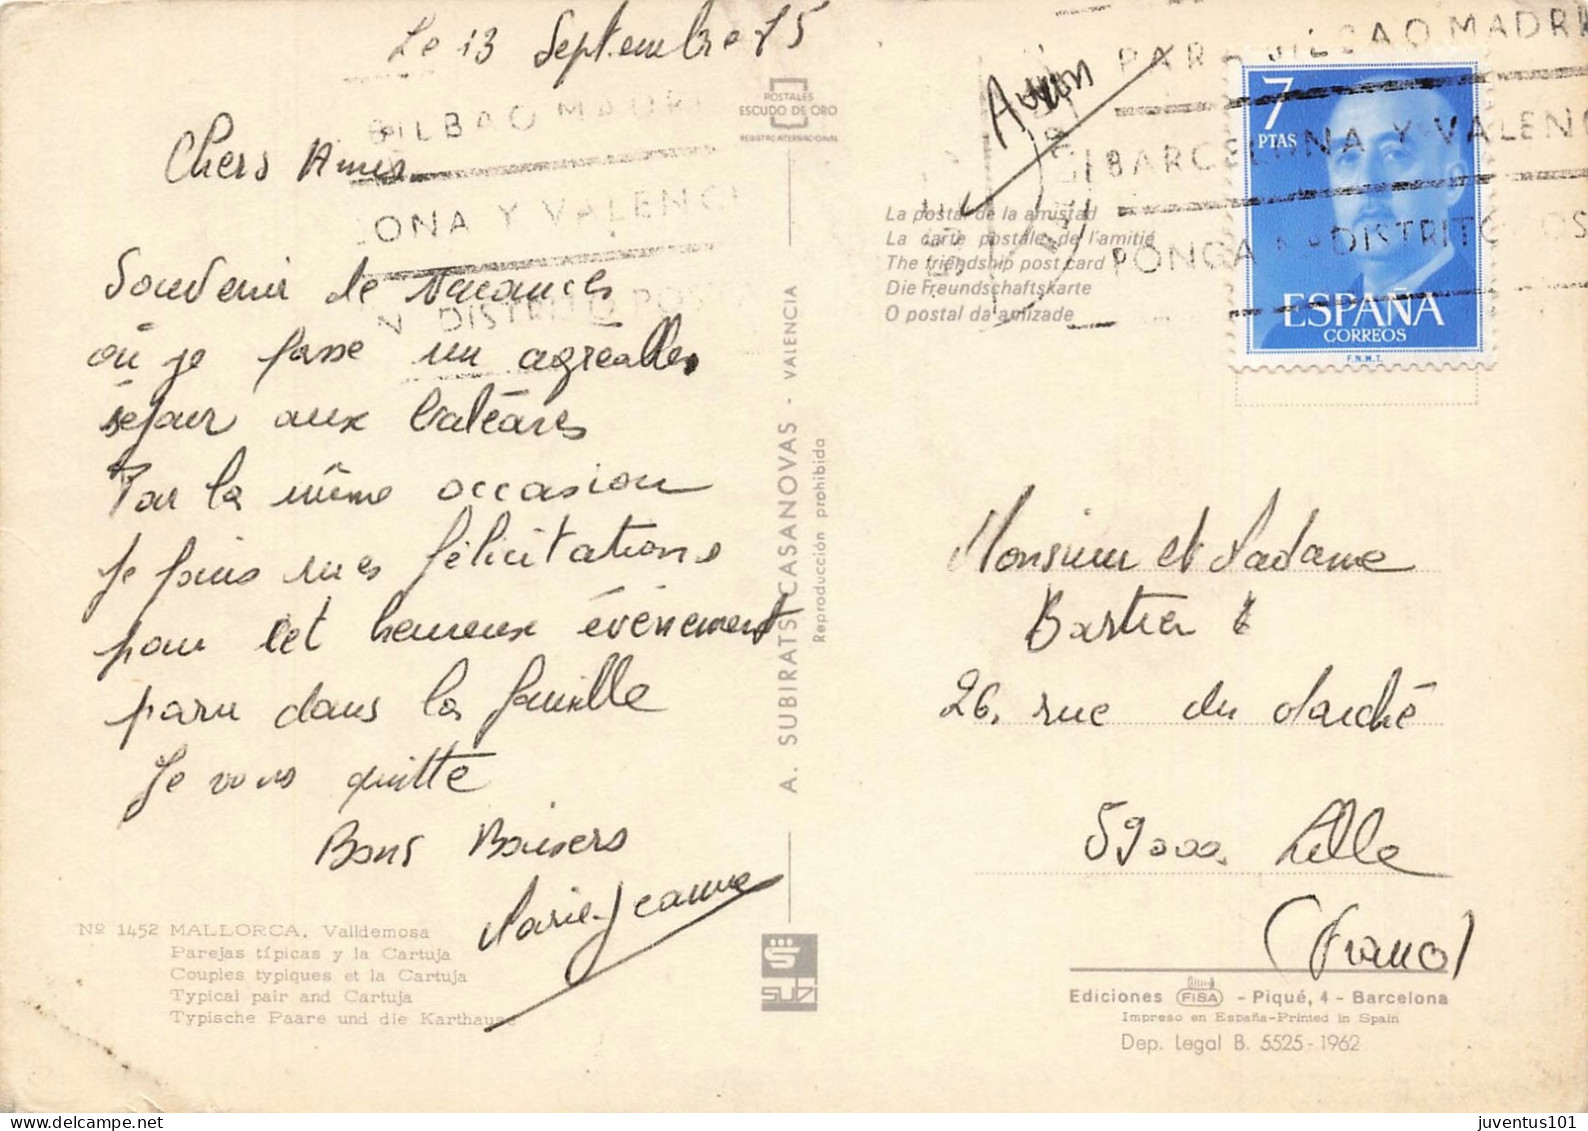 Le 13 Septembre 75
Chers Amis
Souvenir de vacances
où je passe un agréable
séjour aux baléares
Par la même occasion
Je fais mes félicitations
pour cet heureux événement
paru dans la famille
Je vous quitte
Bons Baisers
Marie-Jeanne
Nº 1452 MALLORCA. Valldemosa
Parejas típicas y la Cartuja
Couples typiques et la Cartuja
Typical pair and Cartuja
Typische Paare und die Karthause
BILBAO MADRI
ONA Y VALENCI
N DISTRITO POST
POSTALES
ESCUDO DE ORO
REGISTRO INTERNACIONAL
A. SUBIRATS CASANOVAS - VALENCIA
Reproducción prohibida
SUBI
Avion
PARA BILBAO MADRI
BARCELONA Y VALEN
PONGA Nº DISTRITO POS
7
PTAS
ESPAÑA
CORREOS
F.N.M.T.
La postal de la amistad
La carte postale de l'amitié
The friendship post card
Die Freundschaftskarte
O postal da amizade
Monsieur et Madame
Bastien
26, rue du Marché
59000 Lille
(France)
Ediciones FISA - Piqué, 4 - Barcelona
Impreso en España-Printed in Spain
Dep. Legal B. 5525-1962
juventus101